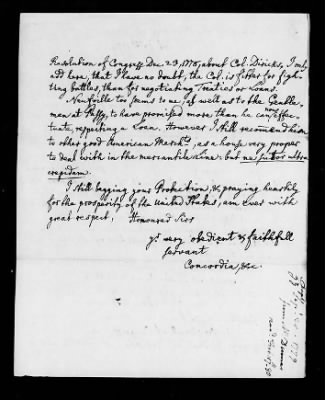 Resolution of Congress Dec. 23, 1778, about Col. Diricks, I only
add here, that I have no doubt, the Col. is fitter for figh-
ting battles, than for negotiating Treaties or Loans.
Neufville too seems to me, as well as to the Gentle-
men at Passy, to have promised more than he can effec-
tuate, respecting a Loan. However I still recommend him
to other good American Merchts, as a house very proper
to deal with in the mercantile line. but ne sutor ultra
crepidam.
I still begging your Protection, & praying heartily
for the prosperity of the United States, am ever with
great respect, Honoured Sirs
yr. very obedient & faithfull
servant
Concordia, &c.